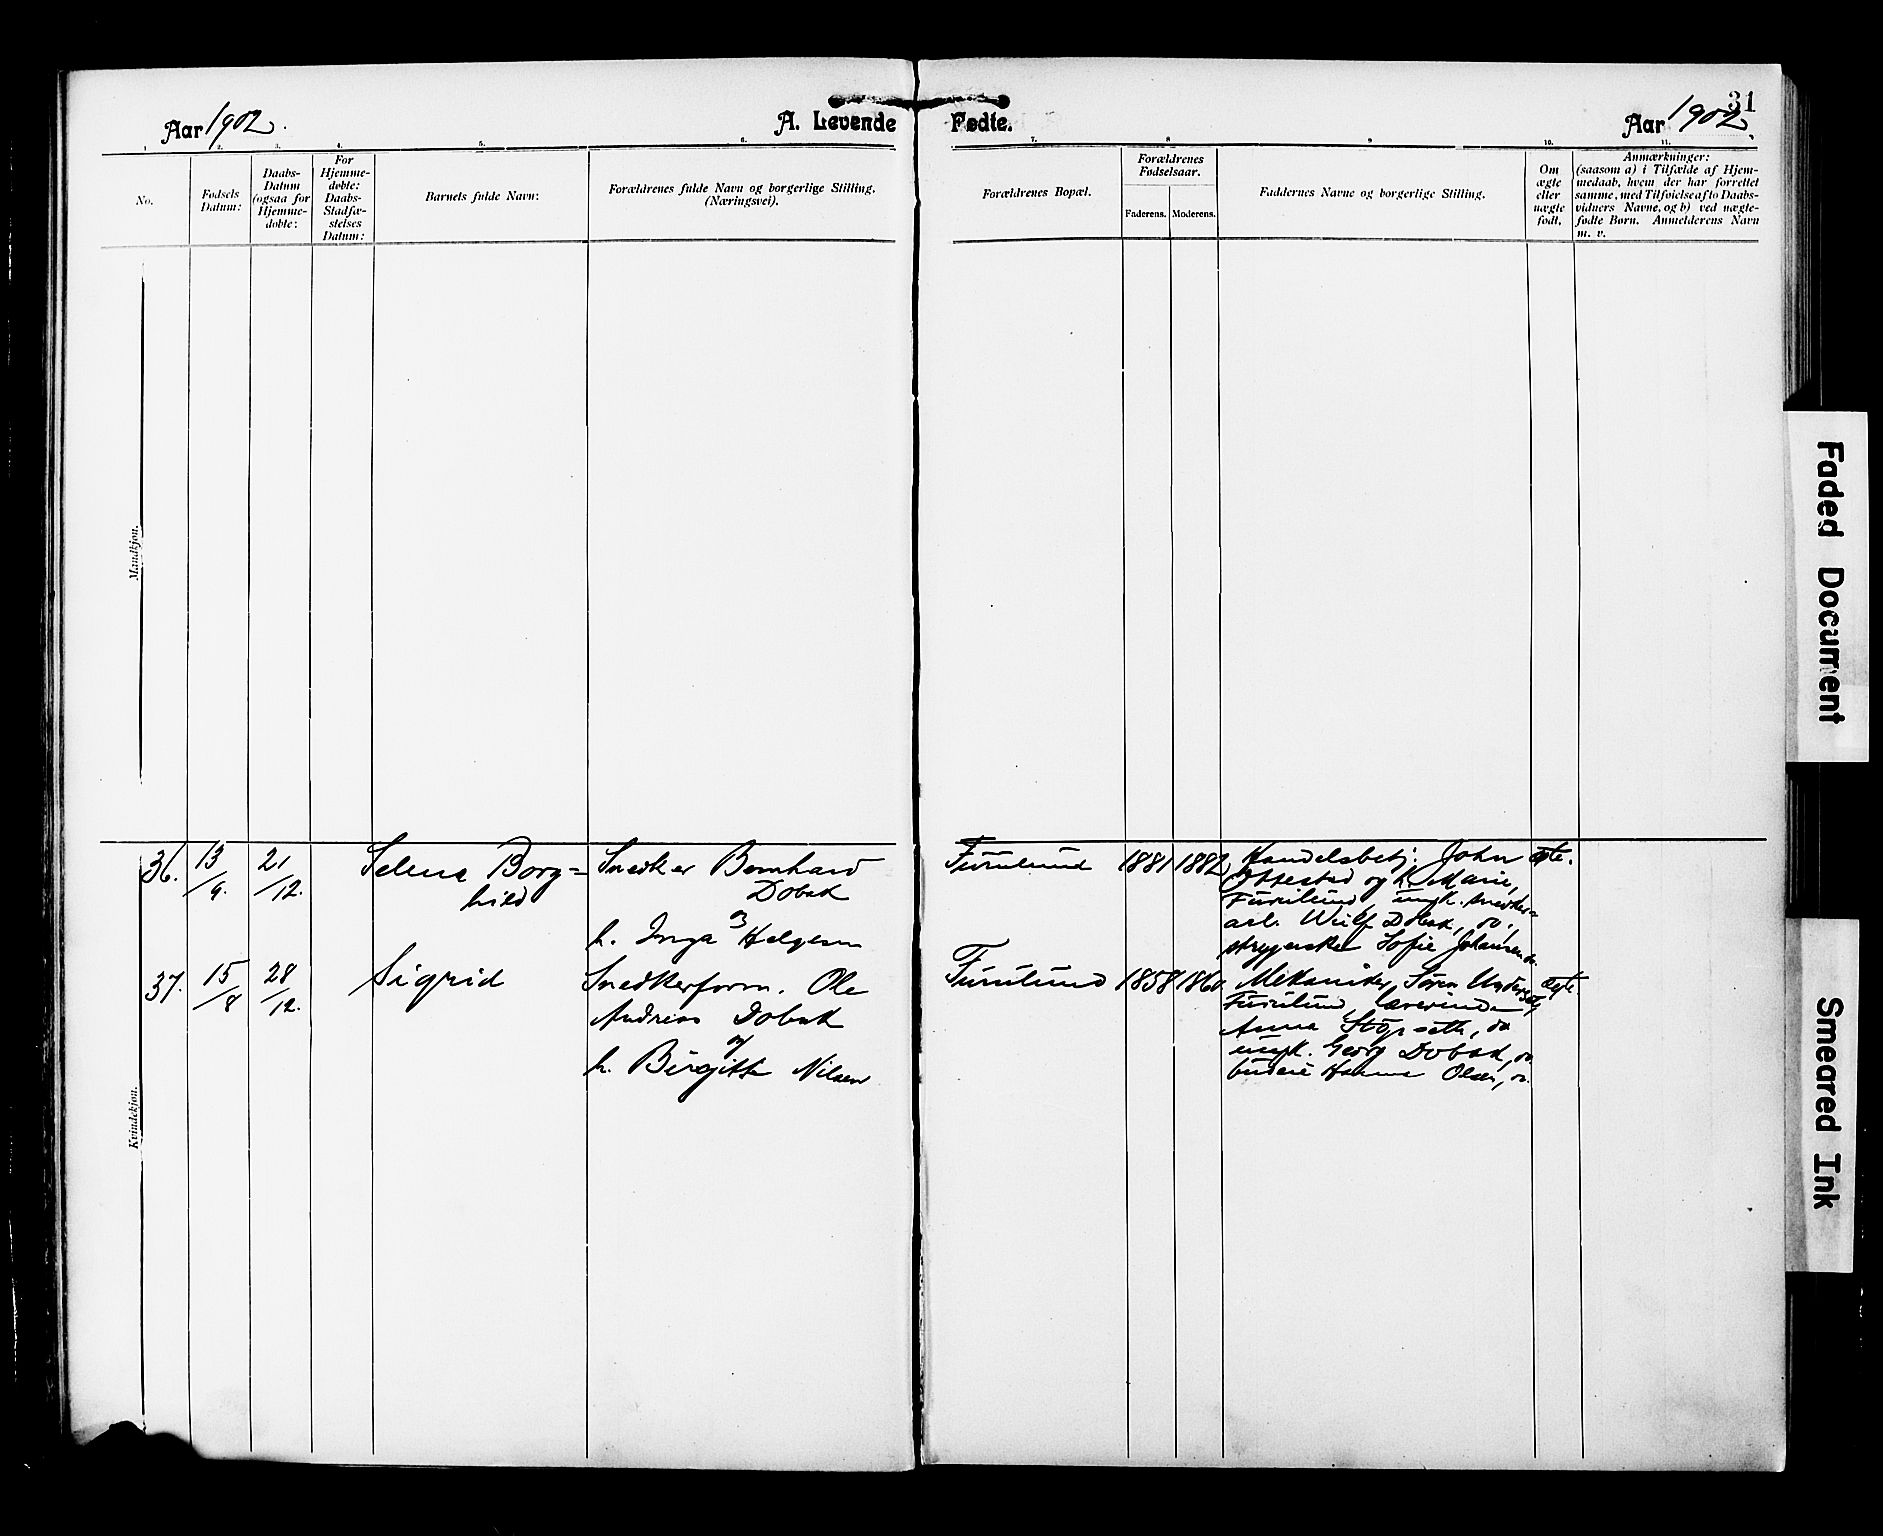 31
Aar 1902.
A. Levende
Fødte.
Aar 1902.
1. 2. 3. 4. 5. 6.
7. 8. 9. 10. 11.
No.
Fødsels
Datum:
Daabs-
Datum
(ogsaa for
Hjemme-
døbte:
For
Hjemme-
døbte:
Daabs-
Stadfæ-
stelses
Datum:
Barnets fulde Navn:
Forældrenes fulde Navn og borgerlige Stilling.
(Næringsvei).
Forældrenes Bopæl.
Forældrenes
Fødselsaar.
Faderens. Moderens.
Faddernes Navne og borgerlige Stilling.
Om
ægte
eller
uægte
født.
Anmærkninger:
(saasom a) i Tilfælde af Hjem-
medaab, hvem der har forrettet
samme, med Tilføielse af to Daabs-
vidners Navne, og b) ved uægte-
fødte Børn. Anmelderens Navn
m. v.
Mandkjøn.
36. 13/9. 21/12. Selena Borg=
hild
Snedker Bernhard
Dobak
og
h. Inga Helgesen
Furulund 1881 1882
Handelsbetj. John
og h. Marie,
Furulund, ungk. snedker=
arb. Wulf Dobak, do,
strygerske Sofie Johansen do.
ægte.
37. 15/8 28/12. Sigrid
Snedkerform. Ole
Andreas Dobak
og
h. Birgitte Nilsen
Furulund 1858 1860
Mekaniker, Søren
Furulund, lærerinde
Anna, do
ungk. Georg Dobak, do.
budeie Hanna Olsen, do.
ægte.
Kvindekjøn.
Faded Document
Smeared Ink